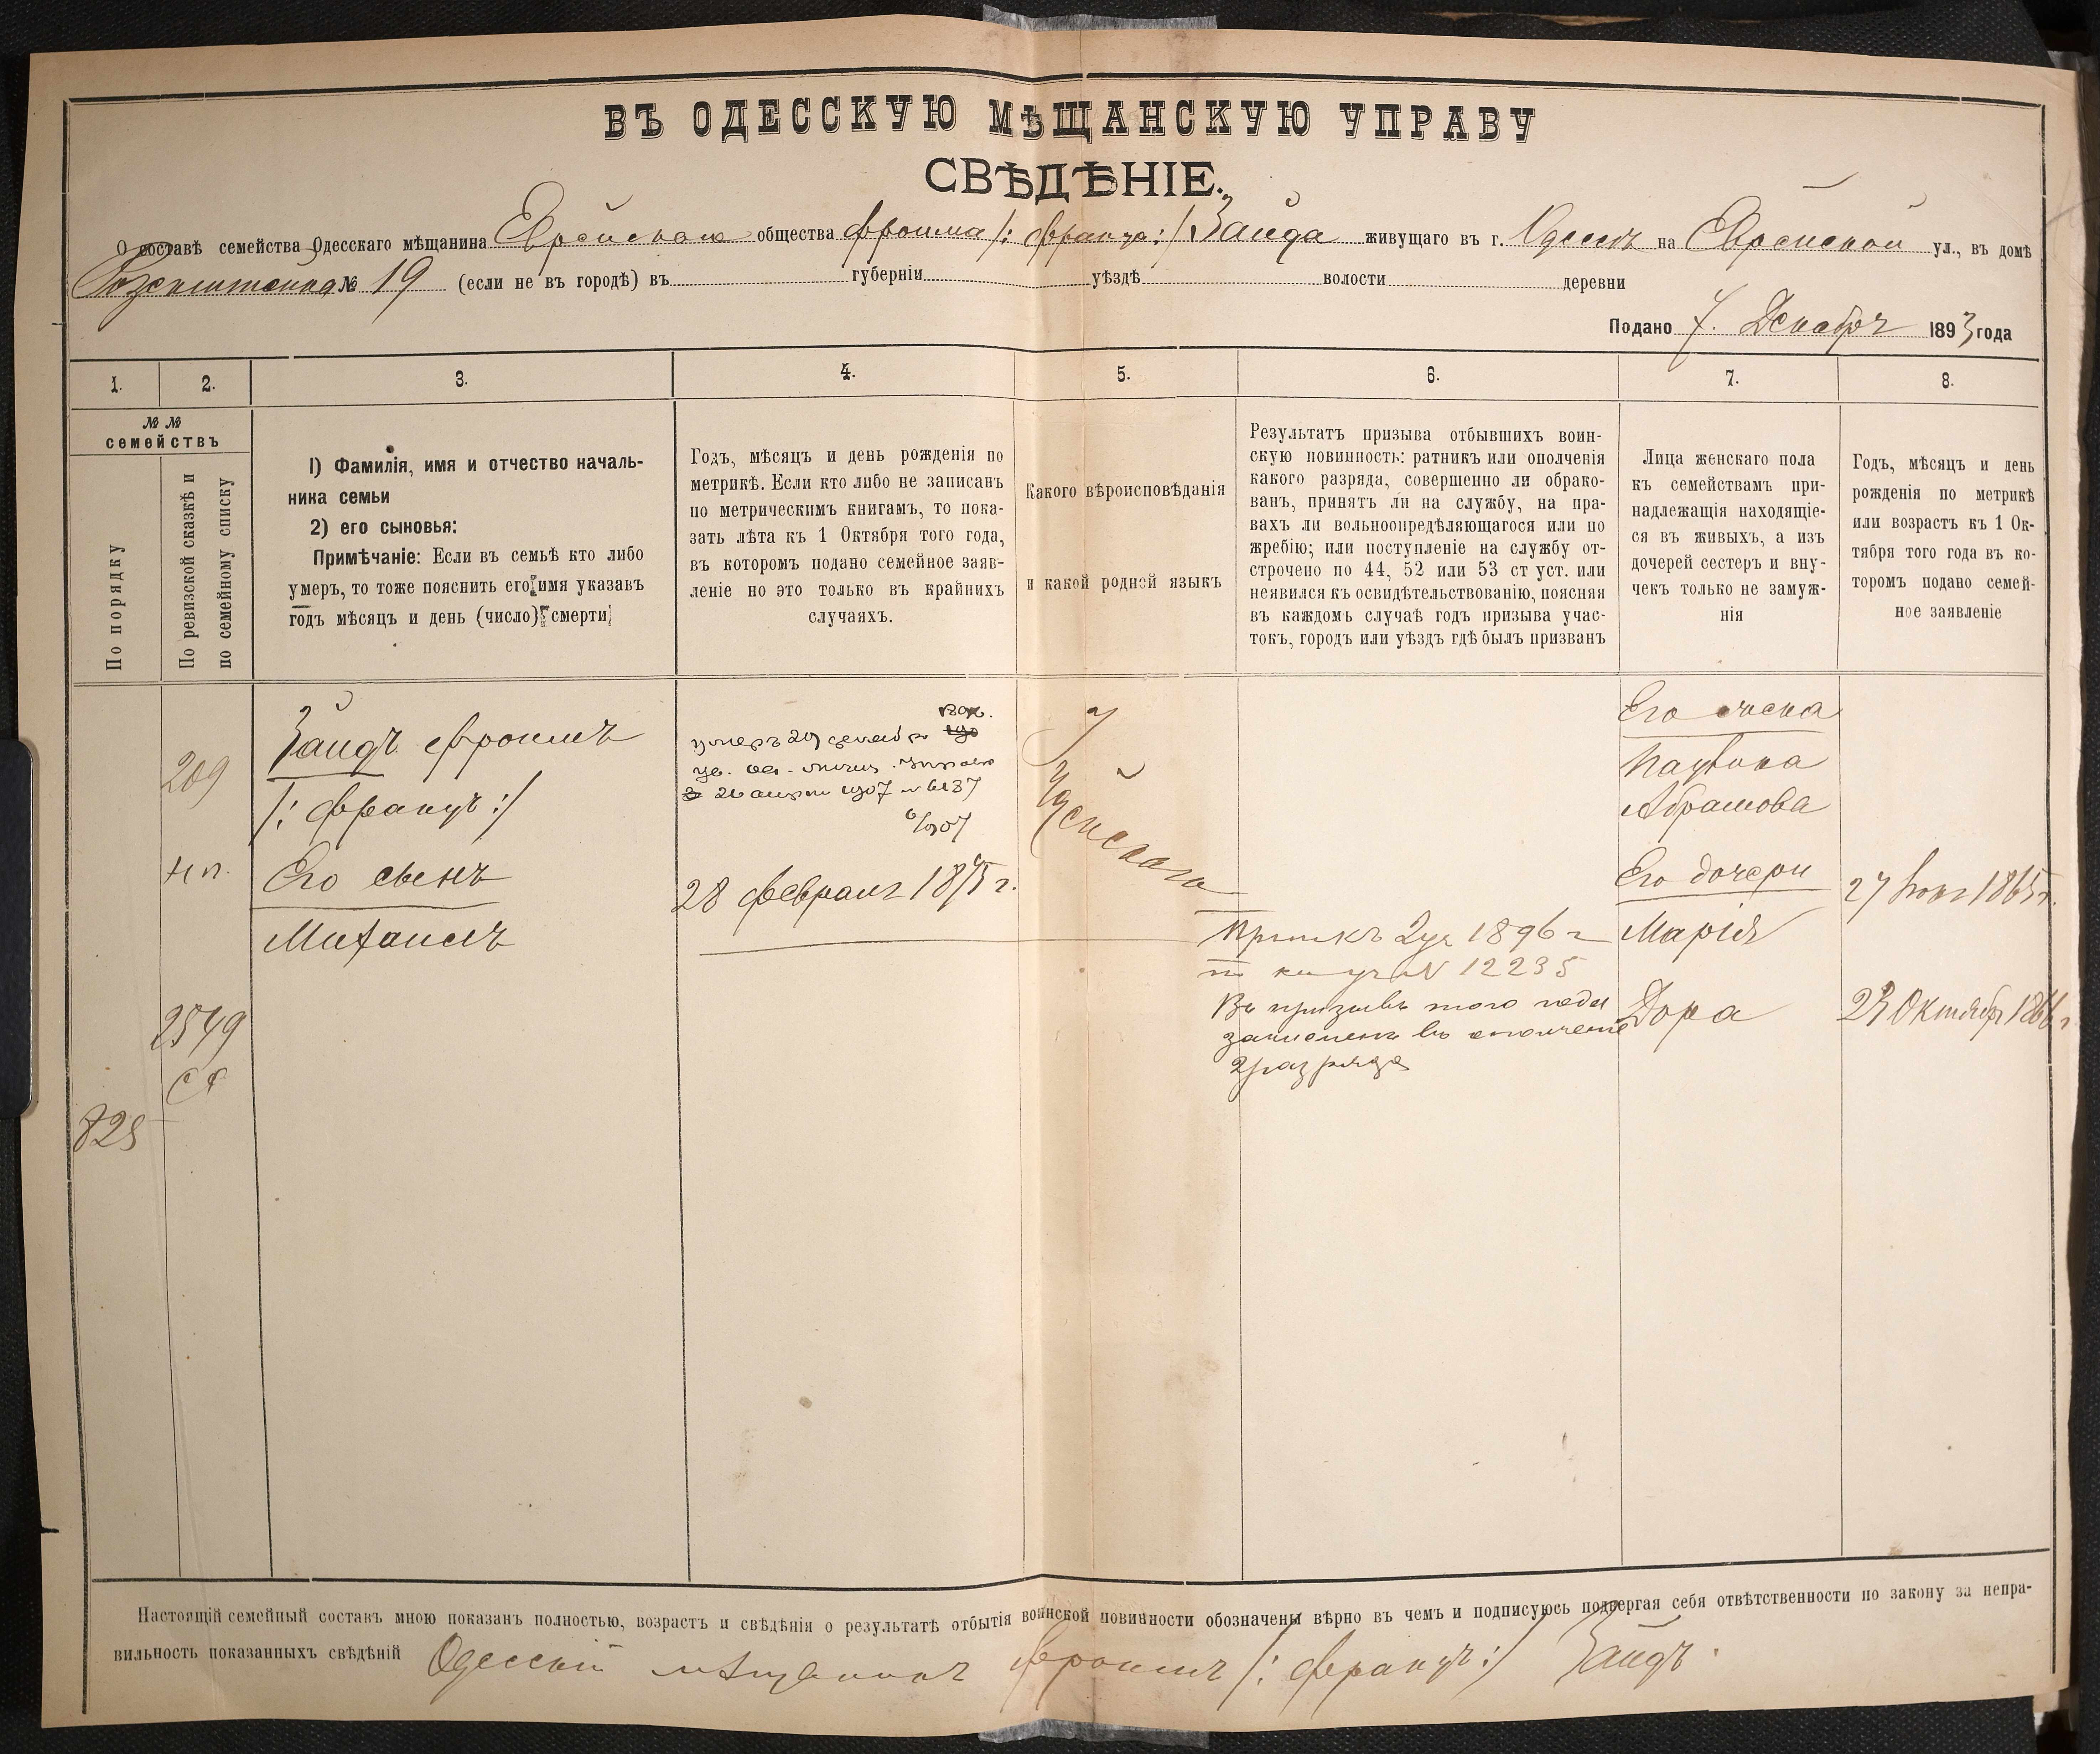 ВЪ ОДЕССКУЮ МѢЩАНСКУЮ УПРАВУ
СВѢДѢНІЕ.
О составѣ семейства Одесскаго мѣщанина Еврейскаго общества Фроима /: Франца :/ Зайда живущаго въ г. Одессѣ на Еврейской ул., въ домѣ
№ 19 (если не въ городѣ) въ губерніи уѣздѣ волости деревни
Подано 7. Декабря 1893 года
1. 2. 3. 4. 5. 6. 7. 8.
№ №
семействъ
По порядку
По ревизской сказкѣ и
по семейному списку
1) Фамилія, имя и отчество началь-
ника семьи
2) его сыновья:
Примѣчаніе: Если въ семьѣ кто либо
умеръ, то тоже пояснить его имя указавъ
годъ мѣсяцъ и день (число) смерти
Годъ, мѣсяцъ и день рожденія по
метрикѣ. Если кто либо не записанъ
по метрическимъ книгамъ, то пока-
зать лѣта къ 1 Октября того года,
въ которомъ подано семейное заяв-
леніе но это только въ крайнихъ
случаяхъ.
Какого вѣроисповѣданія
и какой родной языкъ
Результатъ призыва отбывшихъ воин-
скую повинность: ратникъ или ополченія
какого разряда, совершенно ли обрако-
ванъ, принятъ ли на службу, на пра-
вахъ ли вольноопредѣляющагося или по
жребію; или поступленіе на службу от-
строчено по 44, 52 или 53 ст уст. или
неявился къ освидѣтельствованію, поясняя
въ каждомъ случаѣ годъ призыва учас-
токъ, городъ или уѣздъ гдѣ былъ призванъ
Лица женскаго пола
къ семействамъ при-
надлежащія находящіе-
ся въ живыхъ, а изъ
дочерей сестеръ и вну-
чекъ только не замуж-
нія
Годъ, мѣсяцъ и день
рожденія по метрикѣ
или возрастъ къ 1 Ок-
тября того года въ ко-
торомъ подано семей-
ное заявленіе
209
н п.
2549
СС
825
Зайдъ Фроимъ
/: Францъ :/
Его сынъ
Михаилъ
умеръ 29 декабр
уд. Од. мѣщ. Управы
26 1907 № 6137
28 Февраля 1875 г.
Іудейскаго
2 уч 1896 г
по № 12235
Въ призывъ того года
зачисленъ въ ополченіе
2 разряда
Его жена
Паулина
Абрамова
Его дочери
Марія
Дора
27 1865 г.
23 Октября 1866 г
Настоящій семейный составъ мною показанъ полностью, возрастъ и свѣдѣнія о результатѣ отбытія воинской повинности обозначены вѣрно въ чемъ и подписуюсь подвергая себя отвѣтственности по закону за непра-
вильность показанныхъ свѣдѣній Одесскій мѣщанинъ Фроимъ /: Францъ :/ Зайдъ.